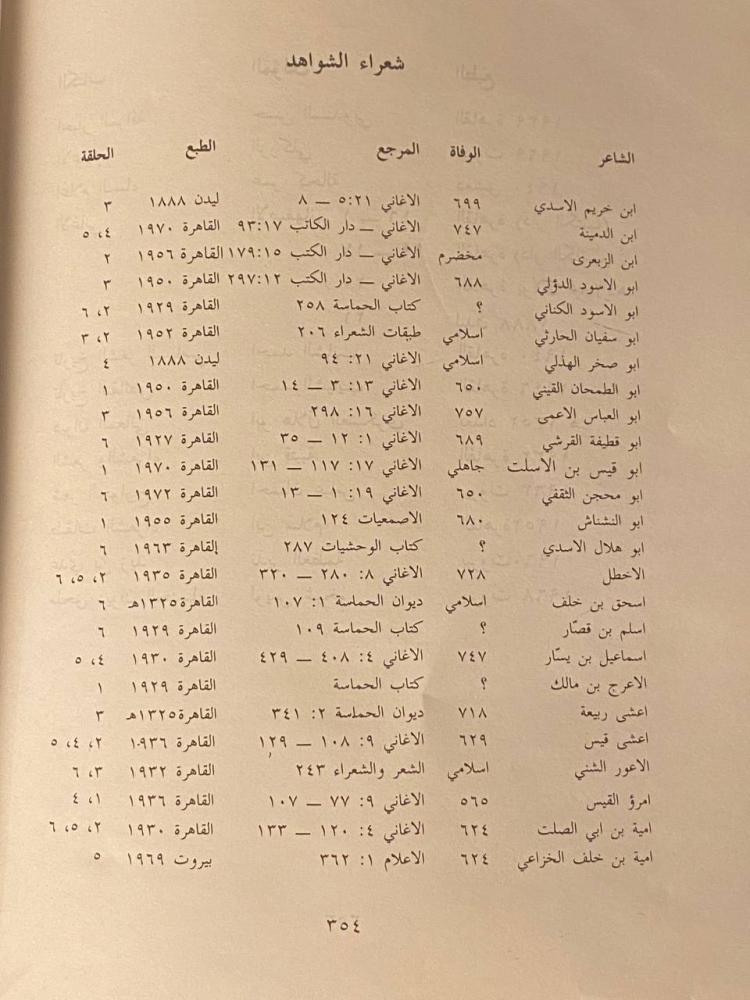 شعراء الشواهد
الشاعر الوفاة المرجع الطبع الحلقة
ابن خريم الاسدي ٦٩٩ الاغاني ٥:٢١ — ٨ ليدن ١٨٨٨ ٣
ابن الدمينة ٧٤٧ الاغاني — دار الكاتب ٩٣:١٧ القاهرة ١٩٧٠ ٤، ٥
ابن الزبعرى مخضرم الاغاني — دار الكتب ١٧٩:١٥ القاهرة ١٩٥٦ ٢
ابو الاسود الدؤلي ٦٨٨ الاغاني — دار الكتب ٢٩٧:١٢ القاهرة ١٩٥٠ ٣
ابو الاسود الكناني ؟ كتاب الحماسة ٢٥٨ القاهرة ١٩٢٩ ٢، ٦
ابو سفيان الحارثي اسلامي طبقات الشعراء ٢٠٦ القاهرة ١٩٥٢ ٢، ٣
ابو صخر الهذلي اسلامي الاغاني ٢١: ٩٤ ليدن ١٨٨٨ ٤
ابو الطمحان القيني ٦٥٠ الاغاني ١٣: ٣ — ١٤ القاهرة ١٩٥٠ ١
ابو العباس الاعمى ٧٥٧ الاغاني ١٦: ٢٩٨ القاهرة ١٩٥٦ ٣
ابو قطيفة القرشي ٦٨٩ الاغاني ١: ١٢ — ٣٥ القاهرة ١٩٢٧ ٦
ابو قيس بن الاسلت جاهلي الاغاني ١٧: ١١٧ — ١٣١ القاهرة ١٩٧٠ ١
ابو محجن الثقفي ٦٥٠ الاغاني ١٩: ١ — ١٣ القاهرة ١٩٧٢ ٦
ابو النشناش ٦٨٠ الاصمعيات ١٢٤ القاهرة ١٩٥٥ ١
ابو هلال الاسدي ؟ كتاب الوحشيات ٢٨٧ القاهرة ١٩٦٣ ٦
الاخطل ٧٢٨ الاغاني ٨: ٢٨٠ — ٣٢٠ القاهرة ١٩٣٥ ٢، ٥، ٦
اسحق بن خلف اسلامي ديوان الحماسة ١: ١٠٧ القاهرة ١٣٢٥هـ ٦
اسلم بن قصّار ؟ كتاب الحماسة ١٠٩ القاهرة ١٩٢٩ ٦
اسماعيل بن يسّار ٧٤٧ الاغاني ٤: ٤٠٨ — ٤٢٩ القاهرة ١٩٣٠ ٤، ٥
الاعرج بن مالك ؟ كتاب الحماسة القاهرة ١٩٢٩ ١
اعشى ربيعة ٧١٨ ديوان الحماسة ٢: ٣٤١ القاهرة ١٣٢٥هـ ٣
اعشى قيس ٦٢٩ الاغاني ٩: ١٠٨ — ١٢٩ القاهرة ١٩٣٦ ٢، ٤، ٥
الاعور الشني اسلامي الشعر والشعراء ٢٤٣ القاهرة ١٩٣٢ ٣، ٦
امرؤ القيس ٥٦٥ الاغاني ٩: ٧٧ — ١٠٧ القاهرة ١٩٣٦ ١، ٤
امية بن ابي الصلت ٦٢٤ الاغاني ٤: ١٢٠ — ١٣٣ القاهرة ١٩٣٠ ٢، ٥، ٦
امية بن خلف الخزاعي ٦٢٤ الاعلام ١: ٣٦٢ بيروت ١٩٦٩ ٥
٣٥٤